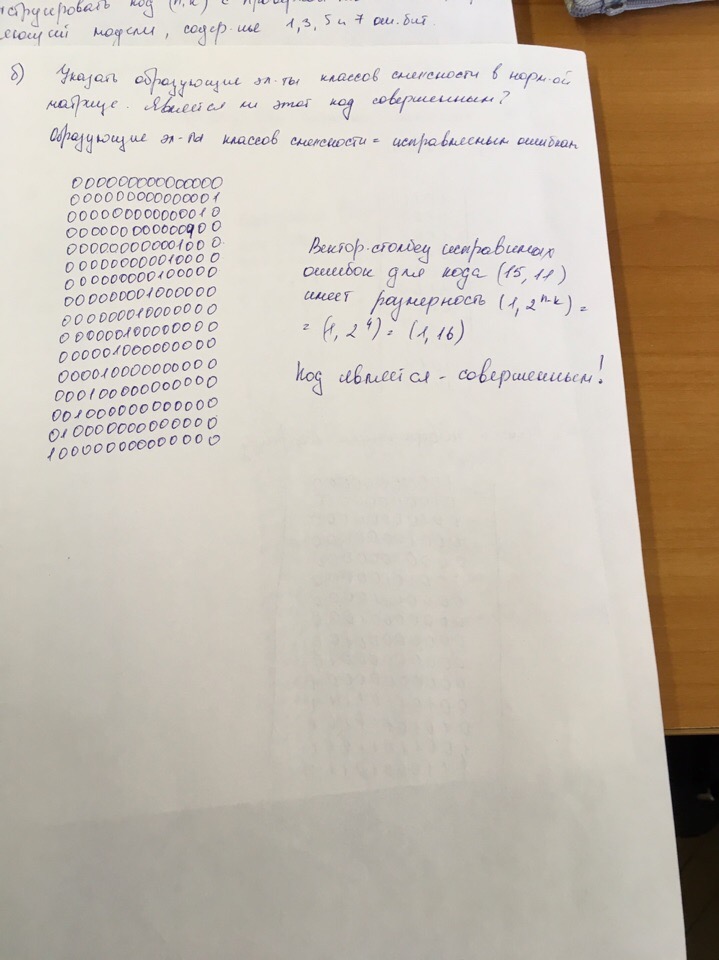 структуировать код (n,k) с проверкой
моделли, содер-щие 1,3,5 и 7 ош.бит.
б) Указать образующие эл-ты классов смежности в норм-ой
матрице. Является ли этот код совершенным?
Образующие эл-ты классов смежности = исправляемым ошибкам
000000000000000
000000000000001
000000000000010
000000000000100
000000000001000
000000000010000
000000000100000
000000001000000
000000010000000
000000100000000
000001000000000
000010000000000
000100000000000
001000000000000
010000000000000
100000000000000
Вектор-столбец исправимых
ошибок для кода (15,11)
имеет размерность (1, 2ⁿ⁻ᵏ) =
= (1, 2⁴) = (1, 16)
Код является - совершенным!